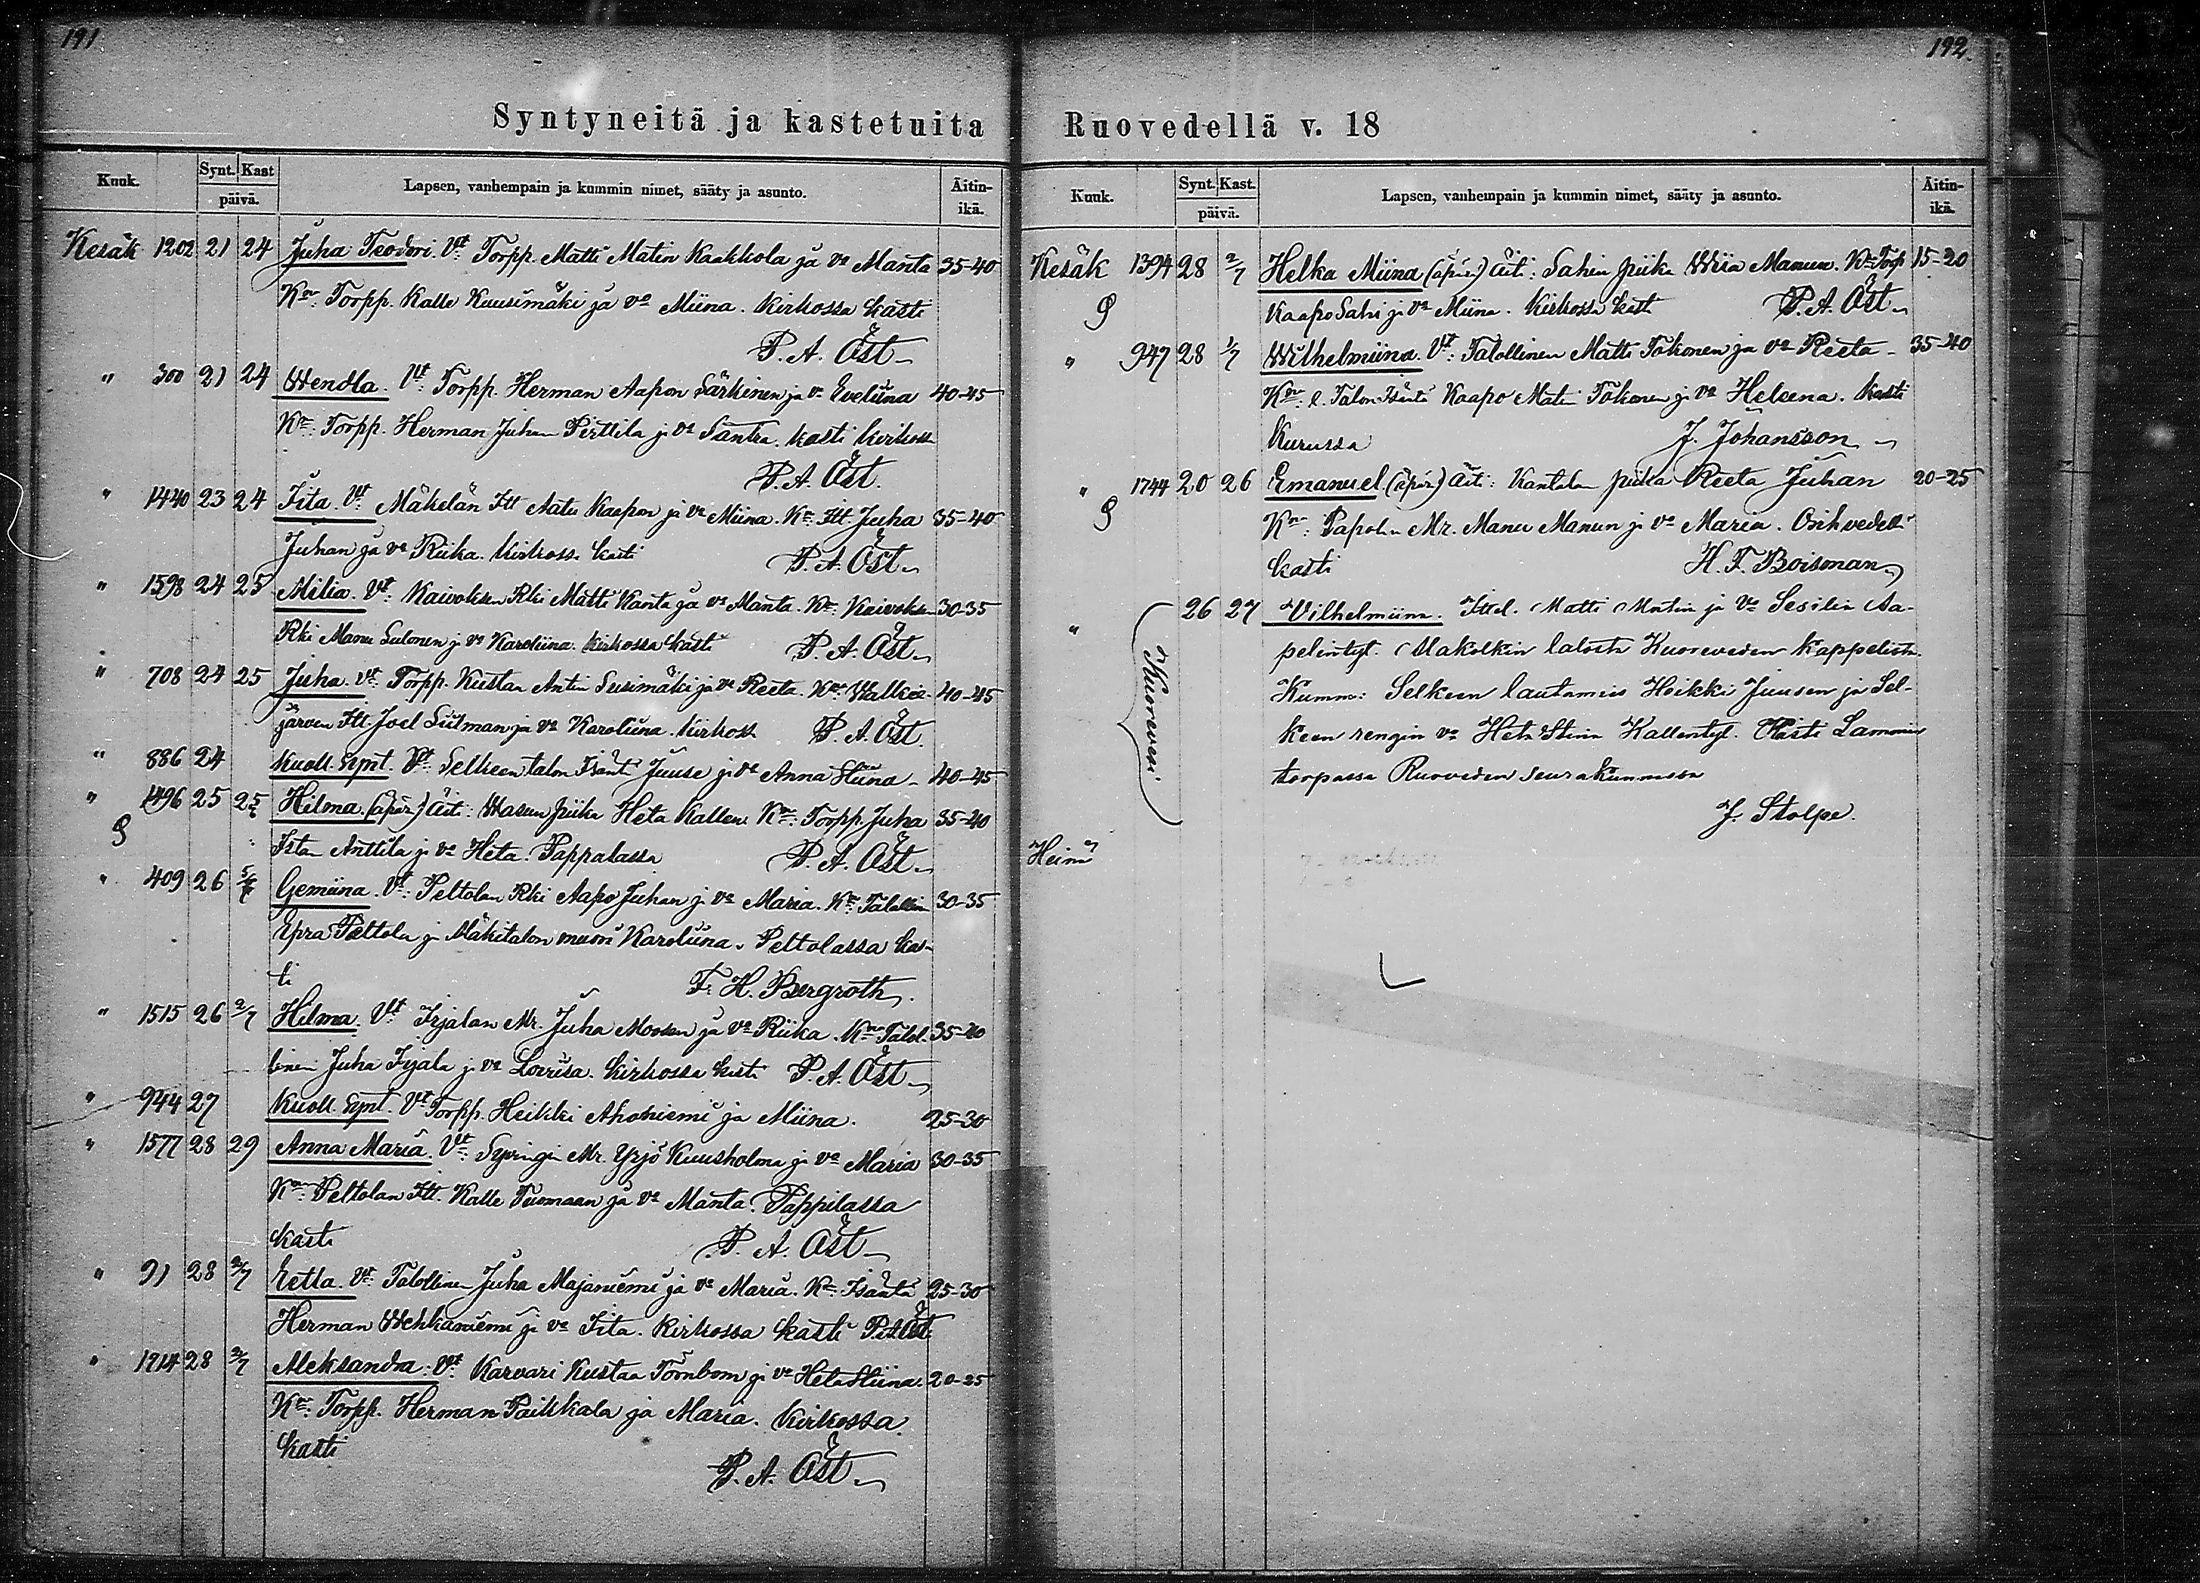 191
Syntyneitä ja kastetuita
Kuuk. Synt. Kast päivä. Lapsen, vanhempain ja kummin nimet, sääty ja asunto. Äitin-ikä.
Kesäk 1202 21 24 Juha Teodori. Vt: Torpp. Matti Matin Kaakkola ja va Manta 35-40
Kr: Torpp. Kalle Kuusimäki ja va Miina. Kirkossa kasti
P. A. Öst
" 300 21 24 Wendla. Vt: Torpp. Herman Aapon Särkinen ja va Eveliina 40-45
Kt: Torpp. Herman Juhan Pirttila ja va Santra. Kasti kirkoss
P. A. Öst.
" 1440 23 24 Fita. Vt: Mäkelän Itt Aatu Kaapon ja va Miina. Kt: Itt. Juha 35-40
Juhan ja va Riika. Kirkossa kasti P. A. Öst
" 1598 24 25 Milia. Vt: Kaivoksen Rki Matti Kanta ja va Manta. Kt: Kaivoksen 30-35
Rki Manu Salonen ja va Karoliina. Kirkossa kasti P. A. Öst
" 708 24 25 Juha. Vt: Torpp. Kustaa Antin Susimäki ja va Reeta. Kt: Walkia- 40-45
järven Itt. Joel Siitman ja va Karoliina. Kirkoss P. A. Öst.
" 886 24 Kuoll. synt. Vt: Selkeen talon Isäntä Juuse ja va Anna Stiina 40-45
" 1496 25 25 Hilma. (äpär) Äiti: Wasun piika Heta Kallen. Kt: Torpp. Juha 35-40
Istan Anttila ja va Heta. Pappalassa P. A. Öst
" 409 26 5/7 Gemiina. Vt: Peltolan Rki Aapo Juhan ja va Maria. Kt: Talollin 30-35
Epra Peltola ja Mäkitalon muori Karoliina. Peltolassa kas-
ti F. H. Bergroth.
" 1515 26 2/7 Hilma. Vt: Irjalan Mr. Juha Moosen ja va Riika. Kt: Talol- 35-40
linen Juha Irjala ja va Lovisa. Kirkossa kasti P. A. Öst
" 944 27 Kuoll. synt. Vt: Torpp. Heikki Ahoniemi ja Miina. 25-30
" 1577 28 29 Anna Maria. Vt: Syvingin Mr. Yrjö Kuusholma ja va Maria 30-35
Kt: Peltolan Itt. Kalle Tuomaan ja va Manta. Pappilassa
kasti P. A. Öst
" 91 28 2/7 Eetla. Vt: Talollinen Juha Majaniemi ja va Maria. Kt: Isäntä 25-30
Herman Wehkaniemi ja va Fita. Kirkossa kasti P. A. Öst
" 1714 28 2/7 Aleksandra. Vt: Karvari Kustaa Törnbom ja va Heta Stiina. 20-25
Kt: Torpp. Herman Paikkala ja Maria. Kirkossa
kasti
P. A. Öst
192.
Ruovedellä v. 18
Kuuk. Synt. Kast. päivä. Lapsen, vanhempain ja kummin nimet, sääty ja asunto. Äitin-ikä.
Kesäk 1394 28 2/7 Helka Miina (äpär) Äiti: Sahin piika Wiia Manun. Kt: Torp 15-20
Kaapo Sahi ja va Miina. Kirkossa kasti P. A. Öst
" 947 28 1/7 Wilhelmiina. Vt: Talollinen Matti Tokonen ja va Reeta 35-40
Kt: Talon Isäntä Kaapo Matin Tokonen ja va Heleena. Kasti
Kurussa J. Johansson
" 1744 20 26 Emanuel. (äpär) Äiti: Kantalan piika Reeta Juhan 20-25
Kt: Papolan Mr. Manu Manun ja va Maria. Orihvedell
kasti H. F. Boisman
" Kuorevesi 26 27 Vilhelmiina. Ittel. Matti Matin ja va Sesilia Aa-
pelintyt. Makolkin talosta Kuoreveden kappelista.
Kumm: Selkeen lautamies Heikki Juusen ja Sel-
keen rengin va Heta Stiina Kallentyt. Kasti Lammin
torpassa Ruoveden seurakunnassa
J. Stolpe.
Heinä